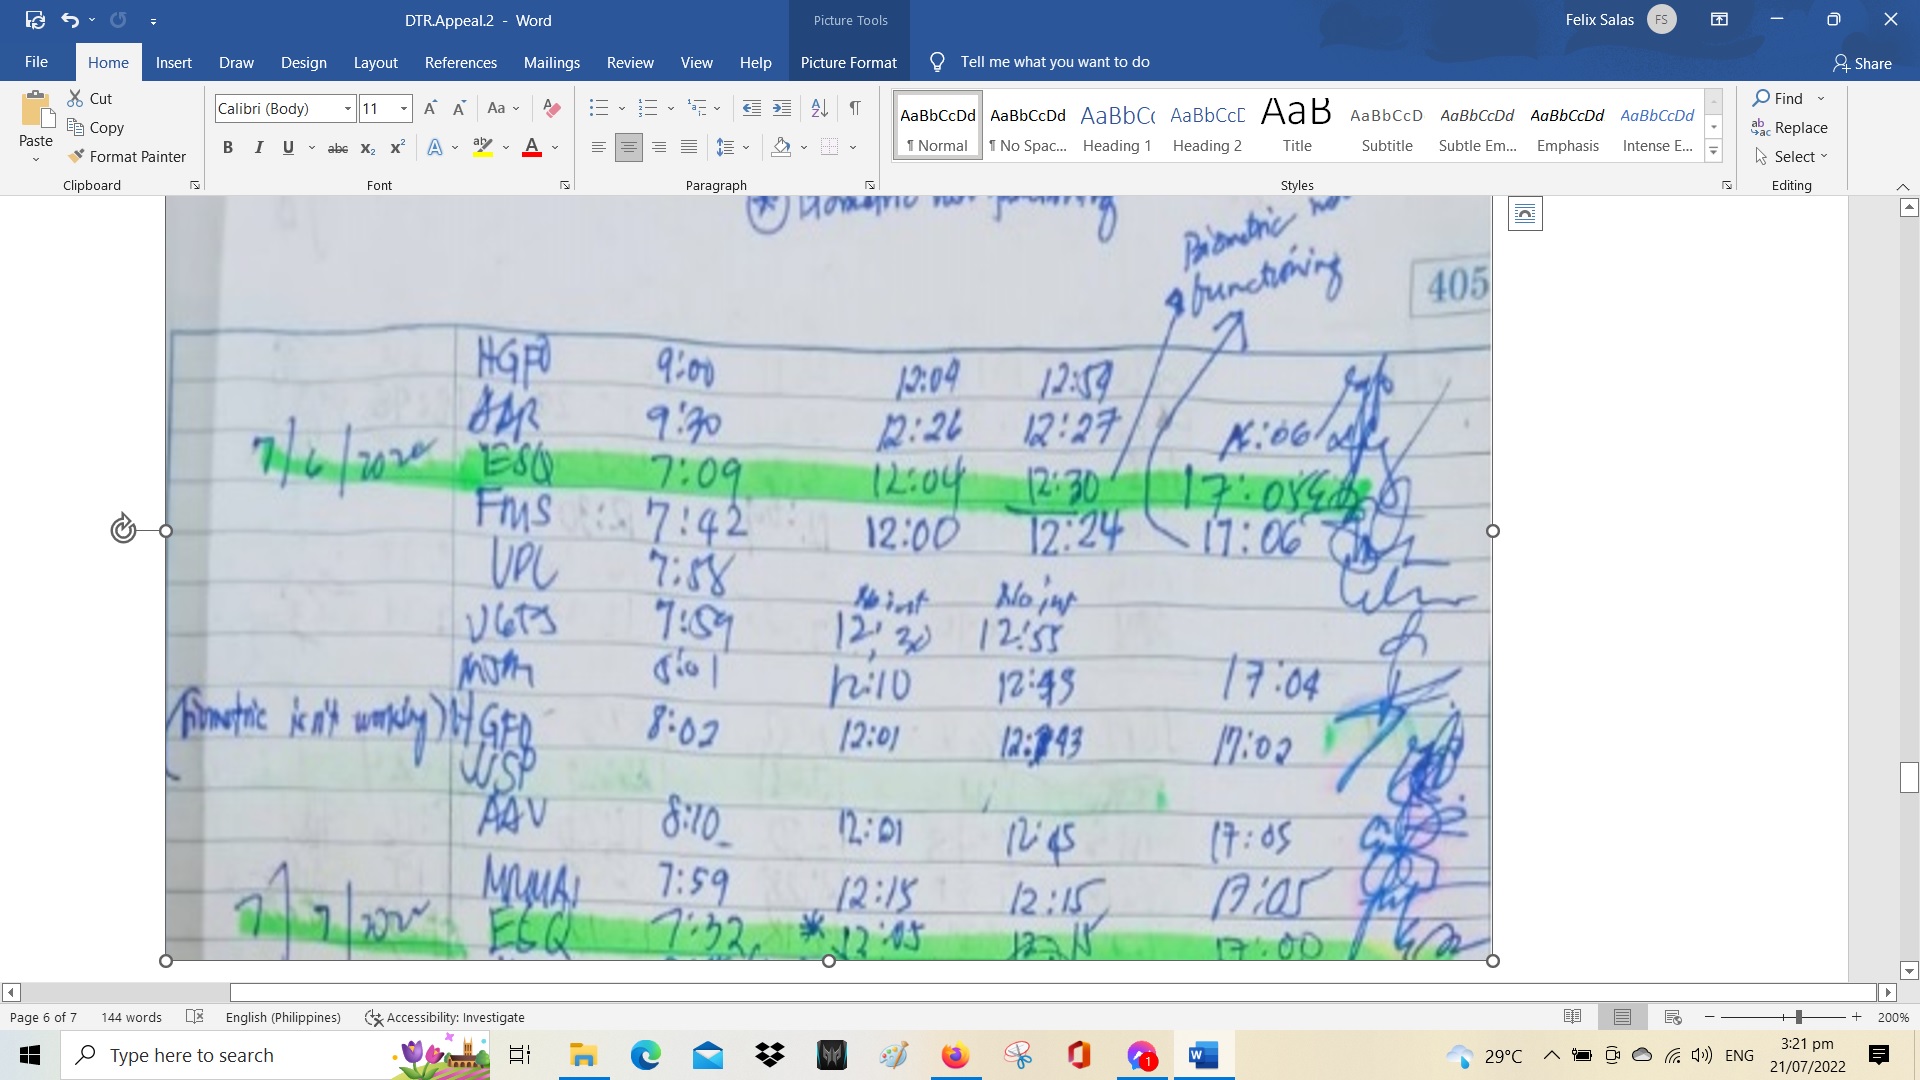 DTR.Appeal.2 - Word
Picture Tools
Felix Salas
FS
File
Home
Insert
Draw
Design
Layout
References
Mailings
Review
View
Help
Picture Format
Tell me what you want to do
Share
Paste
Cut
Copy
Format Painter
Clipboard
Calibri (Body)
11
Font
Paragraph
AaBbCcDd
¶ Normal
AaBbCcDd
¶ No Spac...
AaBbCc
Heading 1
AaBbCcE
Heading 2
AaB
Title
AaBbCcD
Subtitle
AaBbCcDd
Subtle Em...
AaBbCcDd
Emphasis
AaBbCcDd
Intense E...
Styles
Find
Replace
Select
Editing
Biometric
functioning
405
HGFO 9:00 12:09 12:59
9:30 12:26 12:27
7/6/2020 ESQ 7:09 12:04 12:30 17:05
FMS 7:42 12:00 12:24 17:06
VPL 7:58
7:59 12:30 12:55
8:01 12:10 17:04
isn't working) HGFO 8:02 12:01 17:02
AAV 8:10 12:01 12:45 17:05
7:59 12:15 12:15 17:05
7/7/2020 ESQ 7:32 * 12:05 17:00
Page 6 of 7
144 words
English (Philippines)
Accessibility: Investigate
200%
Type here to search
1
29°C
ENG
3:21 pm
21/07/2022